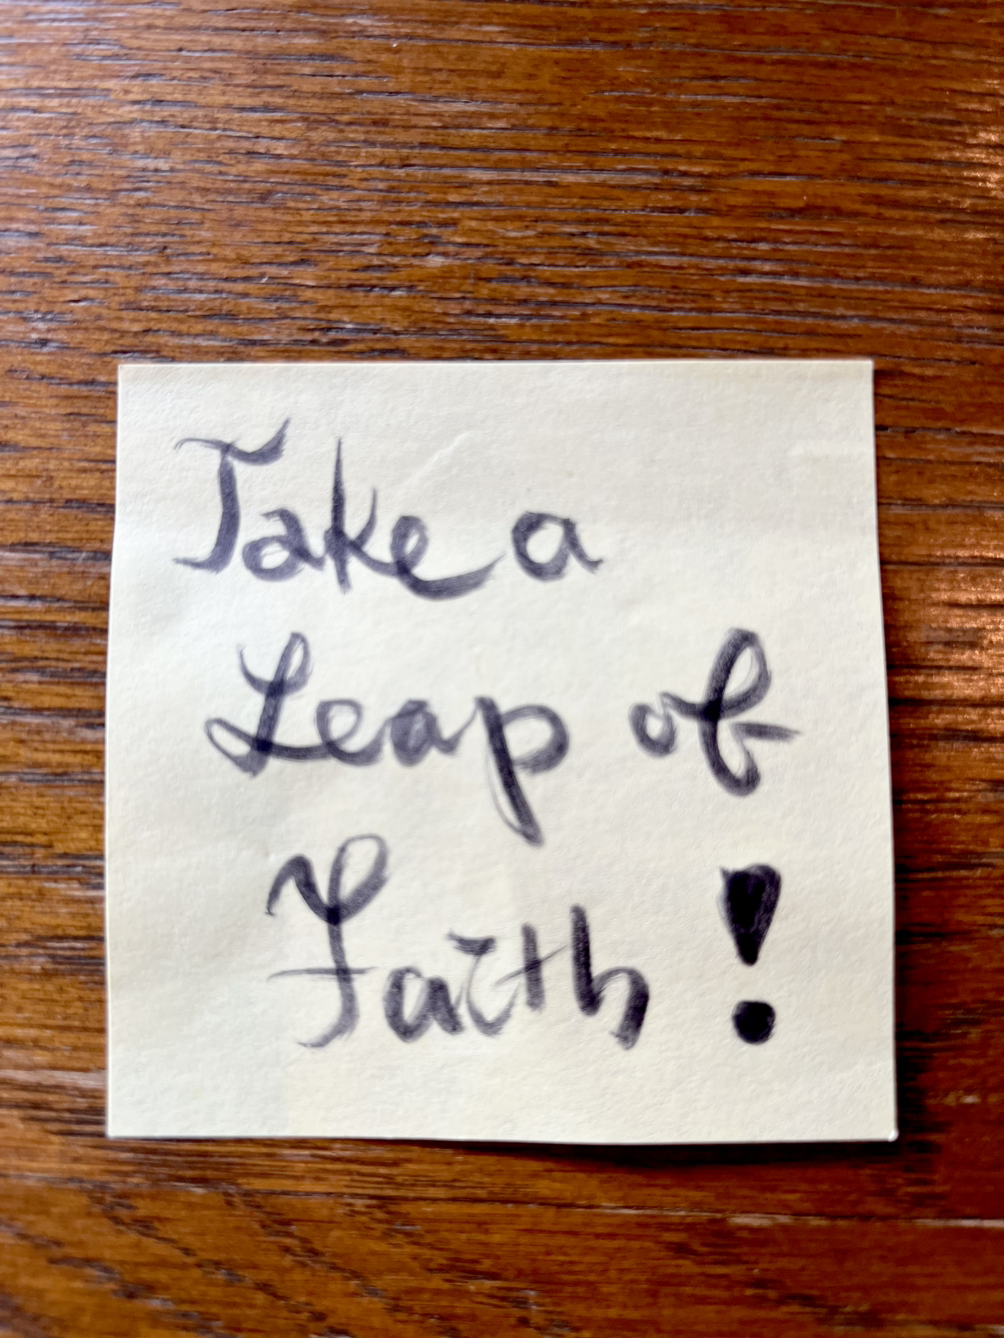 Take a
Leap of
Faith!